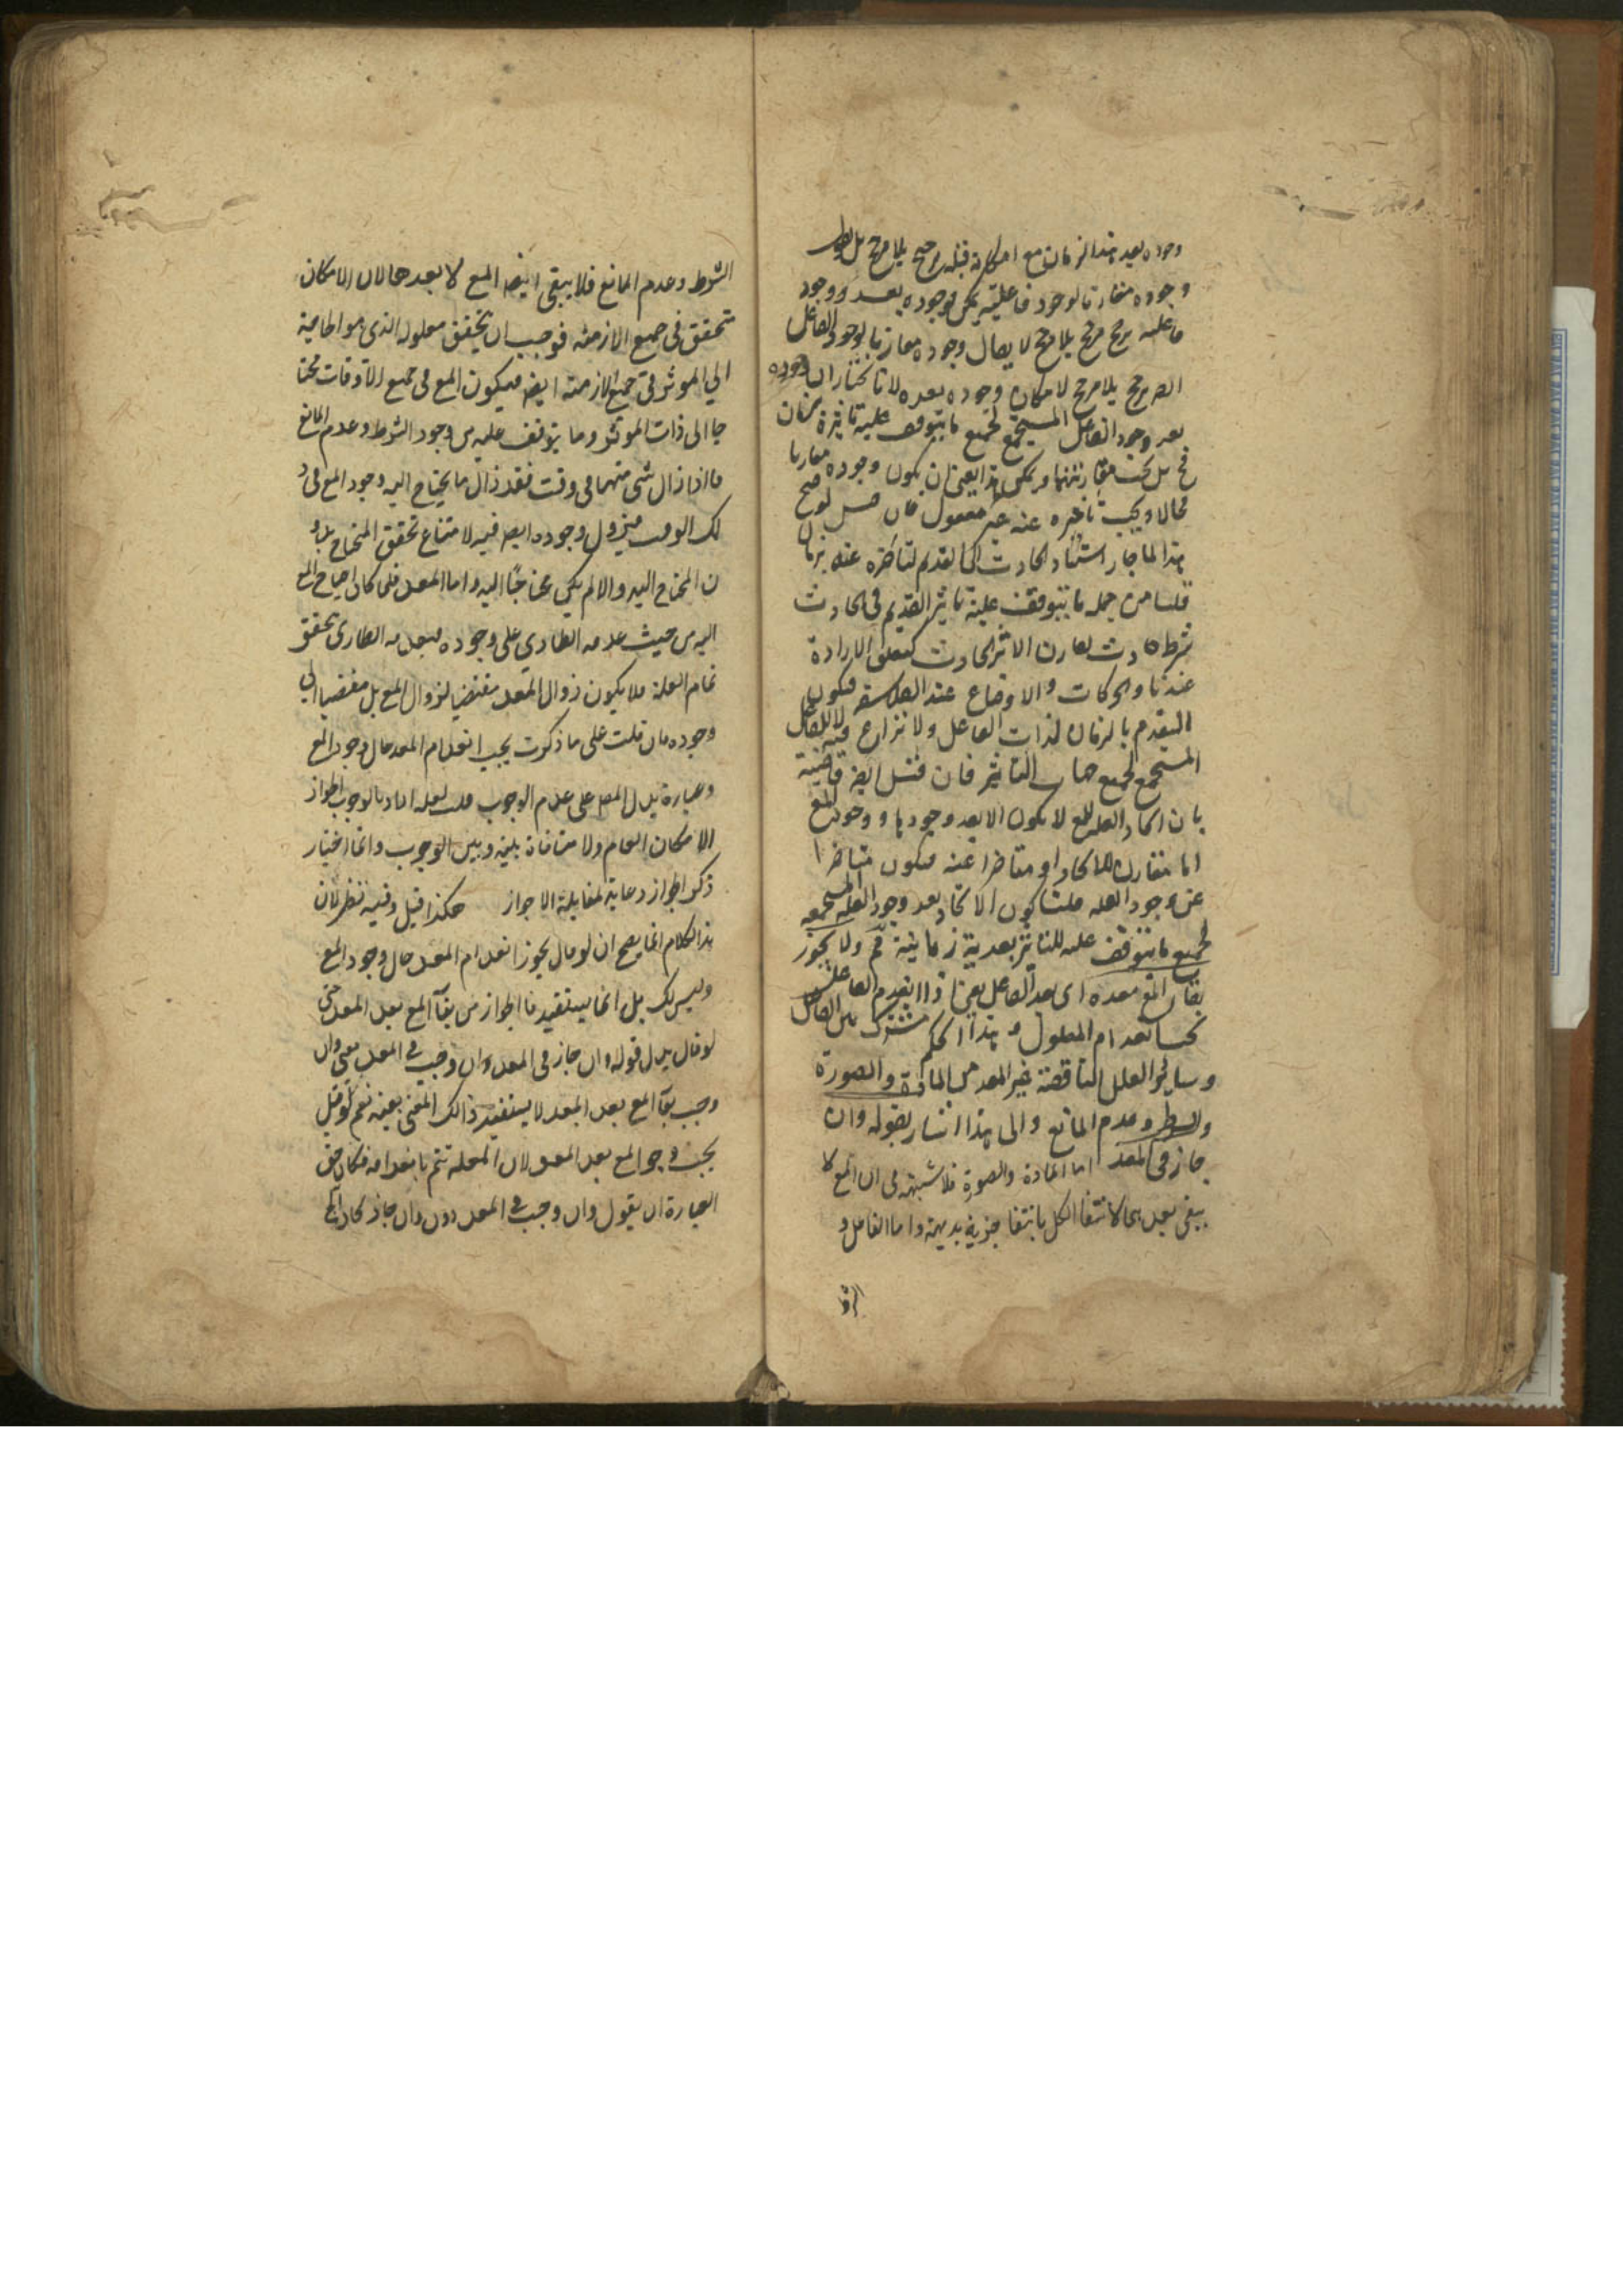 وجوده بعد هذا الزمان مع امكانه قبله ترجيح بلا مرجح بل
وجوده مقارنا لوجود فاعليته يمكن وجوده بعد ووجود
فاعليه ترجح بلا مرجح لا يقال وجوده مقارنا لوجود الفاعل
ايضا ترجيح بلا مرجح لامكان وجوده بعده لانا نختار ان وجوده
بعد وجود الفاعل المستجمع لجميع ما يتوقف عليه تاثيره بزمان
مح بل يجب مقارنتهما ان يكون وجوده مقارنا
محالا ويجب تاخيره عنه غير معقول فان قيل لو صح
هذا لما جاز استناد الحادث الى القديم لتاخره عنه بزمان
قلنا من جملة ما يتوقف عليه تاثير القديم في الحادث
شرط حادث يقارن الاثر الحادث كتعلق الارادة
عندنا والحركات والاوضاع عند الفلاسفه فيكون
التقدم بالزمان لذات الفاعل ولا نزاع فيه لا للفاعل
المستجمع لجميع جهات التاثير فان قيل
بان ايجاد العلة للمع لا يكون الا بعد وجودها ووجود المع
اما مقارن للايجاد او متاخرا عنه فيكون متاخرا
عن وجود العله قلنا كون الايجاد بعد وجود العله المستجمعه
لجميع ما يتوقف عليه للتاثير بعدية زمانية مم ولا يجوز
بقاء المع بعده اى بعد الفاعل يعني اذا انعدم الفاعل
يجب انعدام المعلول وهذا الحكم مشترك بين الفاعل
وساير العلل الناقصة غير المعد من المادة والصورة
والشرط وعدم المانع والى هذا اشار بقوله وان
جاز فى المعد اما المادة والصورة فلا شبهة في ان المع لا
يبقى بعدهما لانتفا الكل بانتفا جزيه بديهة واما الفاعل و
الشرط وعدم المانع فلا يبقى ايضا المع لا بعدها لان الامكان
متحقق فى جميع الازمنه فوجب ان يتحقق معلوله الذى هو الحاجة
الى الموثر فى جميع الازمنه ايضا فيكون المع فى جميع الاوقات محتا
جا الى ذات الموثر وما يتوقف عليه من وجود الشرط وعدم المانع
فاذا زال شى منهما فى وقت فقد زال ما يحتاج اليه وجود المع فى ذ
لك الوقت فيزول وجوده ايضا فيه لامتناع تحقق المحتاج بدو
ن المحتاج اليه والا لم يكن محتاجا اليه واما المعد فلما كان احتياج المع
اليه من حيث عدمه الطارى على وجوده فبعدمه الطارى تحقق
تمام العلة فلا يكون زوال المعد مقتضيا لزوال المع بل مفضيا الى
وجوده فان قلت على ما ذكرت يجب انعدام المعد حال وجود المع
وعبارة المص على عدم الوجوب قلت لعله اراد بالوجوب الجواز
الامكان العام ولا منافاة بينه وبين الوجوب وانما اختيار
ذكر الجواز رعاية لمقابلة لا جواز هكذا قيل وفيه نظر لان
هذا الكلام انما يصح ان لو قال يجوز انعدام المعد حال وجود المع
وليس كك بل انما يستفيد منا الجواز من بقاء المع بعد المعد حتى
لو قال بدل قوله وان جاز فى المعد وان وجب فى المعد بمعنى وان
وجب بقاء المع بعد المعد لا يستفيد ذالك المعنى بعينه نعم لو قيل
يجب وجود المع بعد المعد لان العلة تتم بانعدامه فكان حق
العبارة ان يقول وان وجب فى المعد دون وان جاز لكان